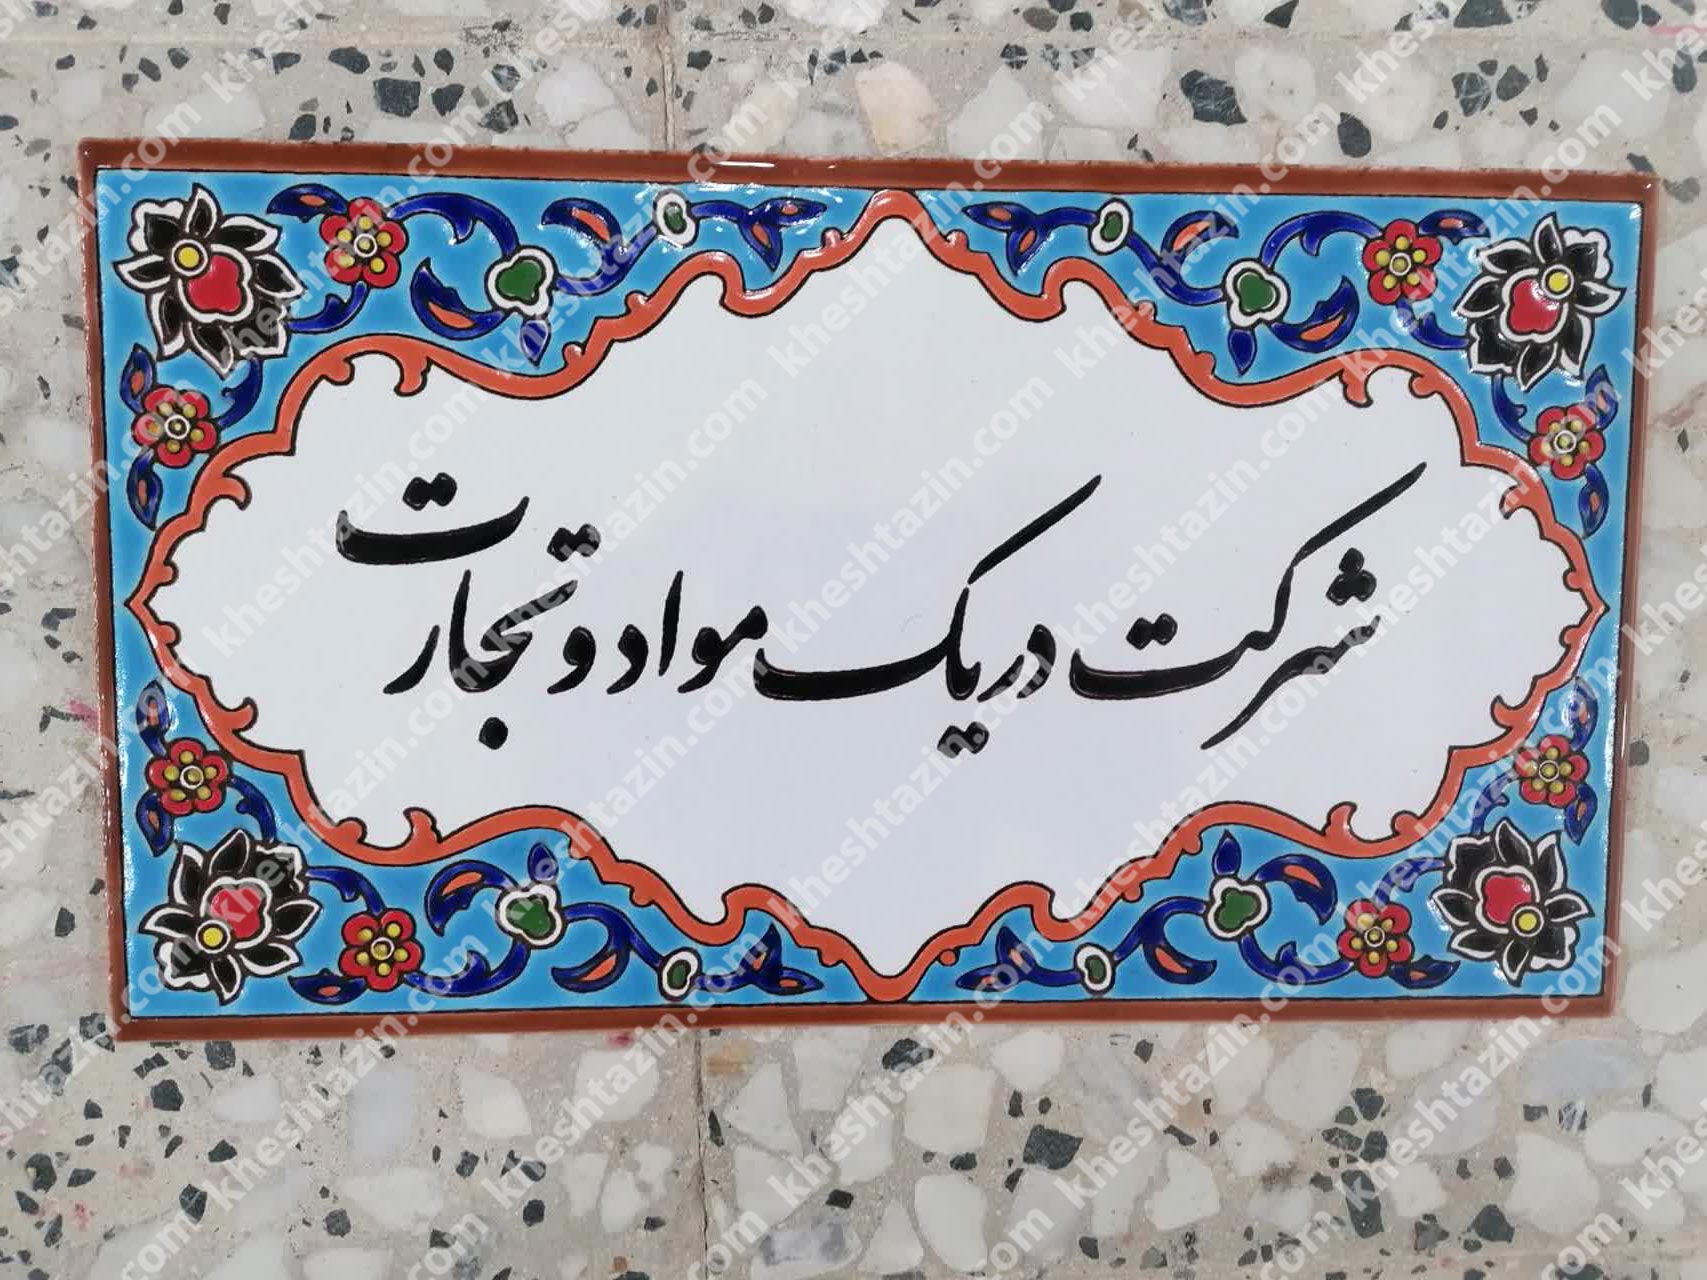 شرکت دریک مواد و تجارت
kheshtazin.com